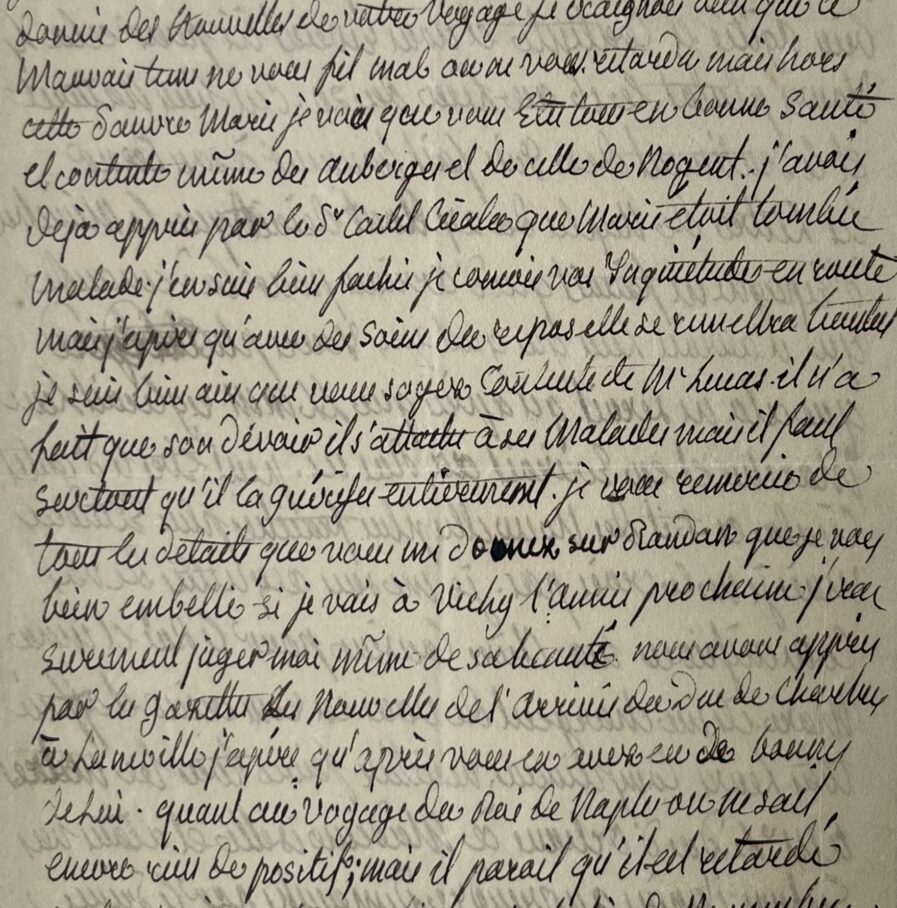 donné des Nouvelles de votre Voyage je craignois bien que ce
Mauvais tems ne vous fit mal ou ne vous retarda mais hors
cette Pauvre Marie je vois que vous Etes tous en bonne Santé
et contente même des Auberges et de celle de Nogent. j'avois
deja appris par le Dr que Marie étoit tombée
Malade j'en suis bien fachée je conçois vos Inquietudes en route
mais j'espère qu'avec des Soins du repos elle se remettra bientot
je suis bien aise que vous soyez Contente de Mr Lucas. il n'a
fait que son dévoir il s'attache à ses Malades mais il faut
surtout qu'il la guérisse entierement. je vous remercie de
tous les détails que vous me donnez sur Randan que je vois
bien embelli. si je vais à Vichy l'année prochaine j'irai
surement juger moi même de sa beauté. nous avons appris
par les Gazettes les Nouvelles de l'Arrivée du Duc de Chartres
à Luneville j'espère qu'après vous en aurez eu de bonnes
de Lui. quant au Voyage du Roi de Naples on ne sait
encore rien de positif; mais il parait qu'il est retardé